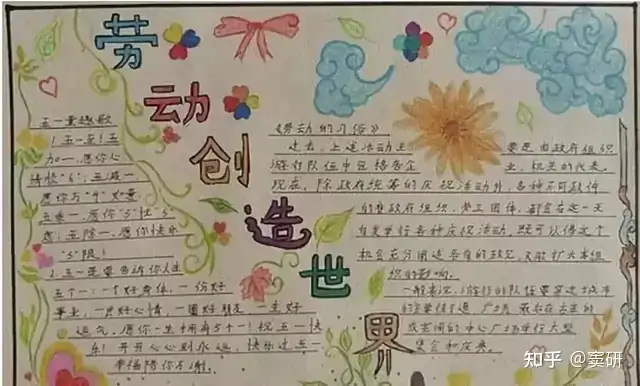 劳动创造世界
五一童趣歌
1.五一至！五
加一，愿你心
情快"6"；五减一
愿你与"4"如意
五乘一，愿你"5"忧"5"
虑；五除一，愿你快乐
"5"限！
2.五一是要告诉你人生
五个一：一个好身体，一份好
事业，一片好心情，一圈好朋友，一生好
运气，愿你一生拥有5个一！祝五一快
乐！开开心心到永远，快乐过五一
幸福陪你
《劳动的习俗》
过去，上述活动主要是由政府组织
游行队伍中包括各企业、机关的代表。
现在，除政府统筹的庆祝活动外，各种不同政件
的非政府组织、劳工团体，都会在这一天
自发举行各种庆祝活动，既可以借这个
机会充分阐述各自的政见，又能扩大本组
织的影响。
一般来说，游行的队伍要穿过城市
的主要街道、广场，最后在
或空阔的中心广场举行大型
集会和庆典。
知乎 @窦研